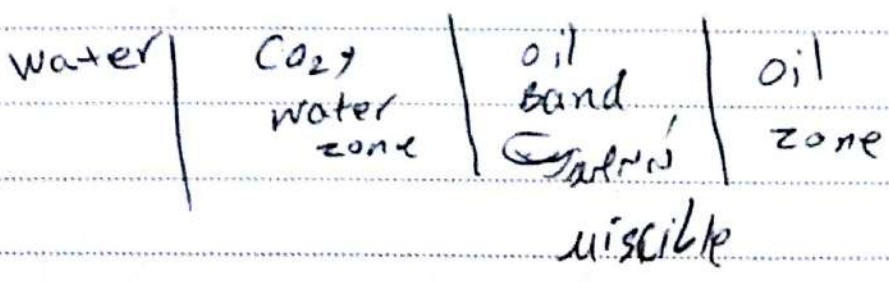 water
CO₂,
water
zone
oil
Band
oil
zone
miscible